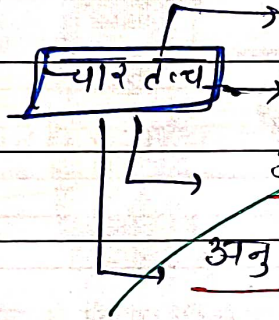 चार तत्व
अनु